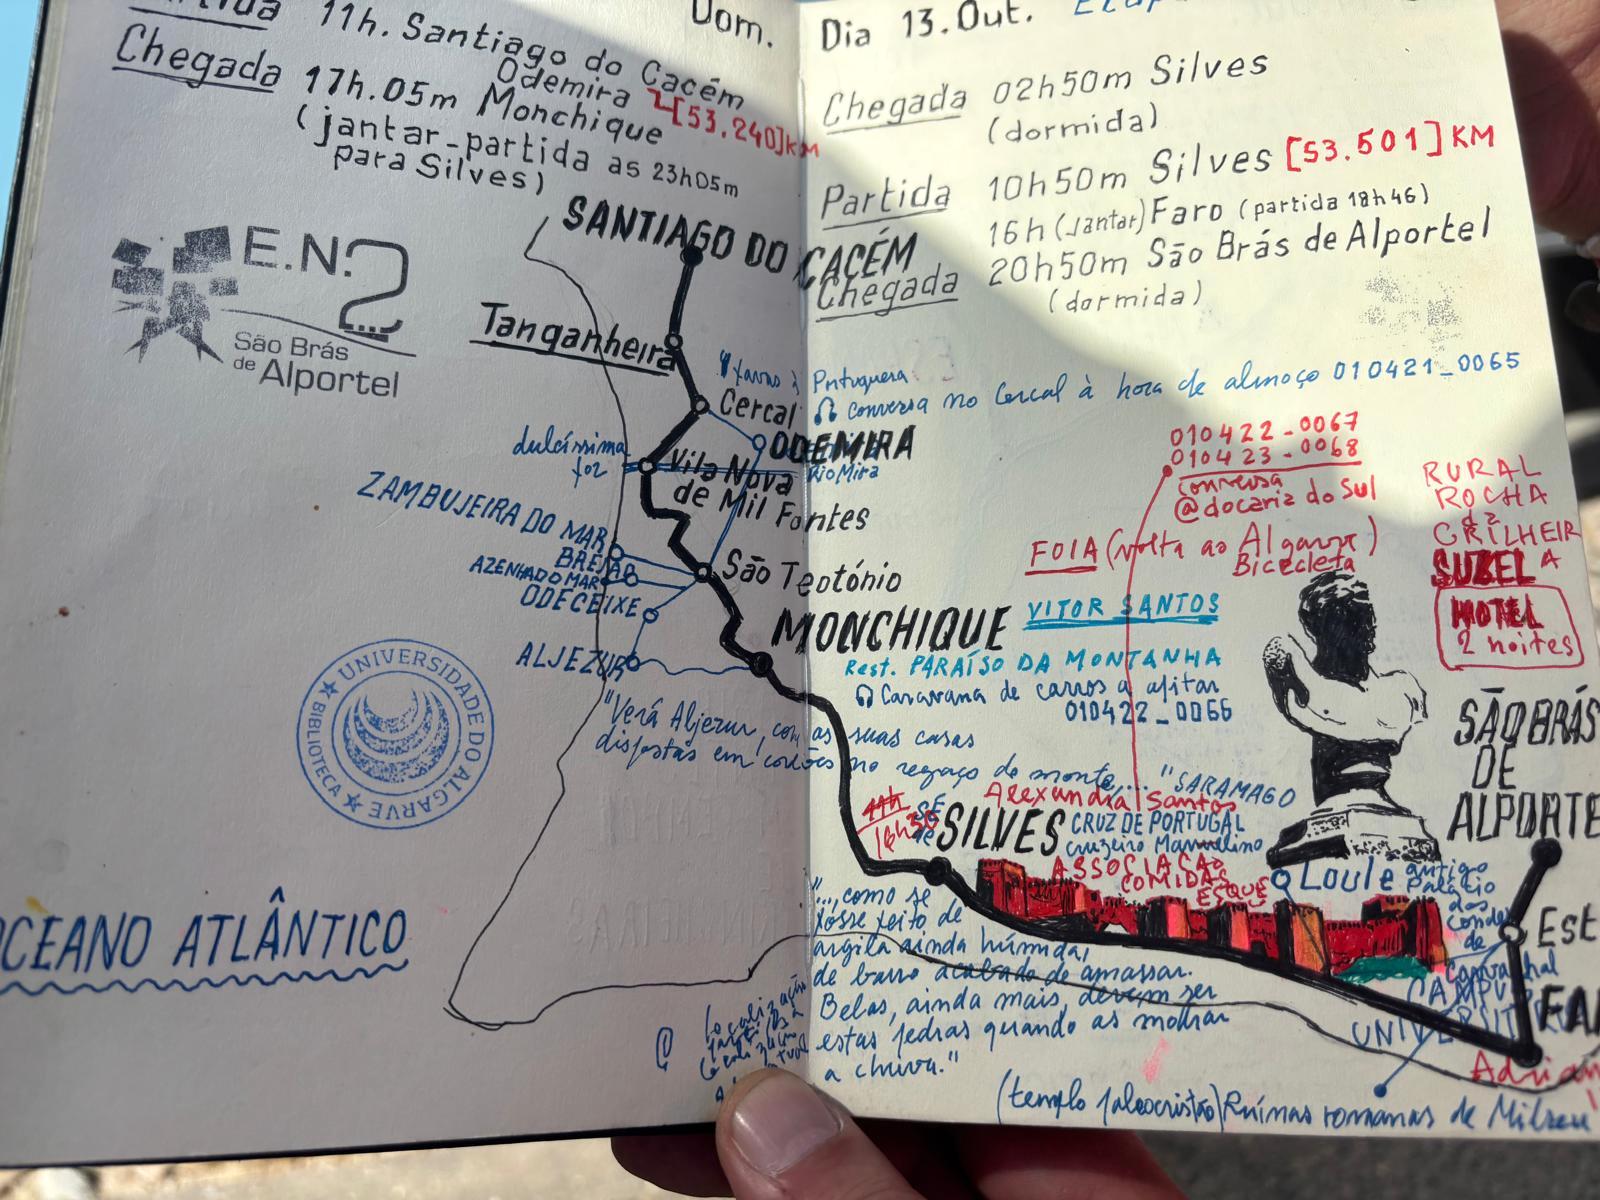 11h. Santiago do Cacém
Odemira [53.240]KM
Chegada 17h.05m Monchique
(jantar-partida as 23h05m
para Silves)
E.N.2
São Brás
de Alportel
UNIVERSIDADE DO ALGARVE
BIBLIOTECA
OCEANO ATLÂNTICO
Dom. Dia 13.Out.
Chegada 02h50m Silves
(dormida)
Partida 10h50m Silves [53.501]KM
16h (Jantar) Faro (partida 18h46)
Chegada 20h50m São Brás de Alportel
(dormida)
SANTIAGO DO CACÉM
Tanganheira
Portuguesa
Cercal
conversa no Cercal à hora de almoço 010421_0065
ODEMIRA
Rio Mira
dulcíssima
foz
Vila Nova
de Mil Fontes
ZAMBUJEIRA DO MAR
BREJÃO
AZENHA DO MAR
ODECEIXE
São Teotónio
ALJEZUR
MONCHIQUE
010422_0067
010423_0068
conversa
@docaria do Sul
FOIA (volta ao Algarve)
Bicicleta
RURAL
ROCHA
da
GRILHEIR
A
HOTEL
2 noites
VITOR SANTOS
Rest. PARAÍSO DA MONTANHA
Caravana de carros a apitar
010422_0066
"Verá Aljezur, com as suas casas
dispostas em cordões no regaço do monte,..." SARAMAGO
Alexandra Santos
16h30
SÉ
de
SILVES
CRUZ DE PORTUGAL
Cruzeiro Manuelino
ASSOCIAÇÃO
COMIDA
SÃO BRÁS
DE
ALPORTE
Loulé
antigo
Palácio
dos
Condes
de
Carvalhal
Est
CAMPUS
FA
Adrian
"..., como se
fosse feito de
argila ainda húmida,
de barro acabado de amassar.
Belas, ainda mais, devem ser
estas pedras quando as molhar
a chuva."
(templo paleocristão) Ruínas romanas de Milreu